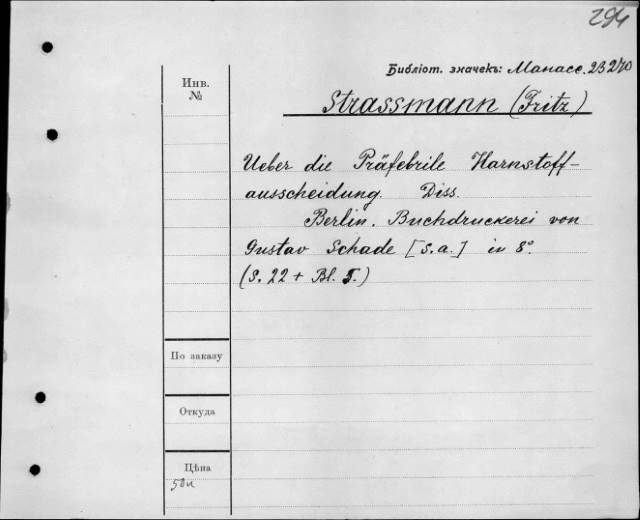 294
Библіот. значекъ: Манасс. 23270
Инв.
№
Strassmann (Fritz)
Ueber die Präfebrile Harnstoff-
ausscheidung. Diss.
Berlin. Buchdruckerei von
Gustav Schade [s.a.] in 8°.
(S. 22 + Bl. 5.)
По заказу
Откуда
Цѣна
50к